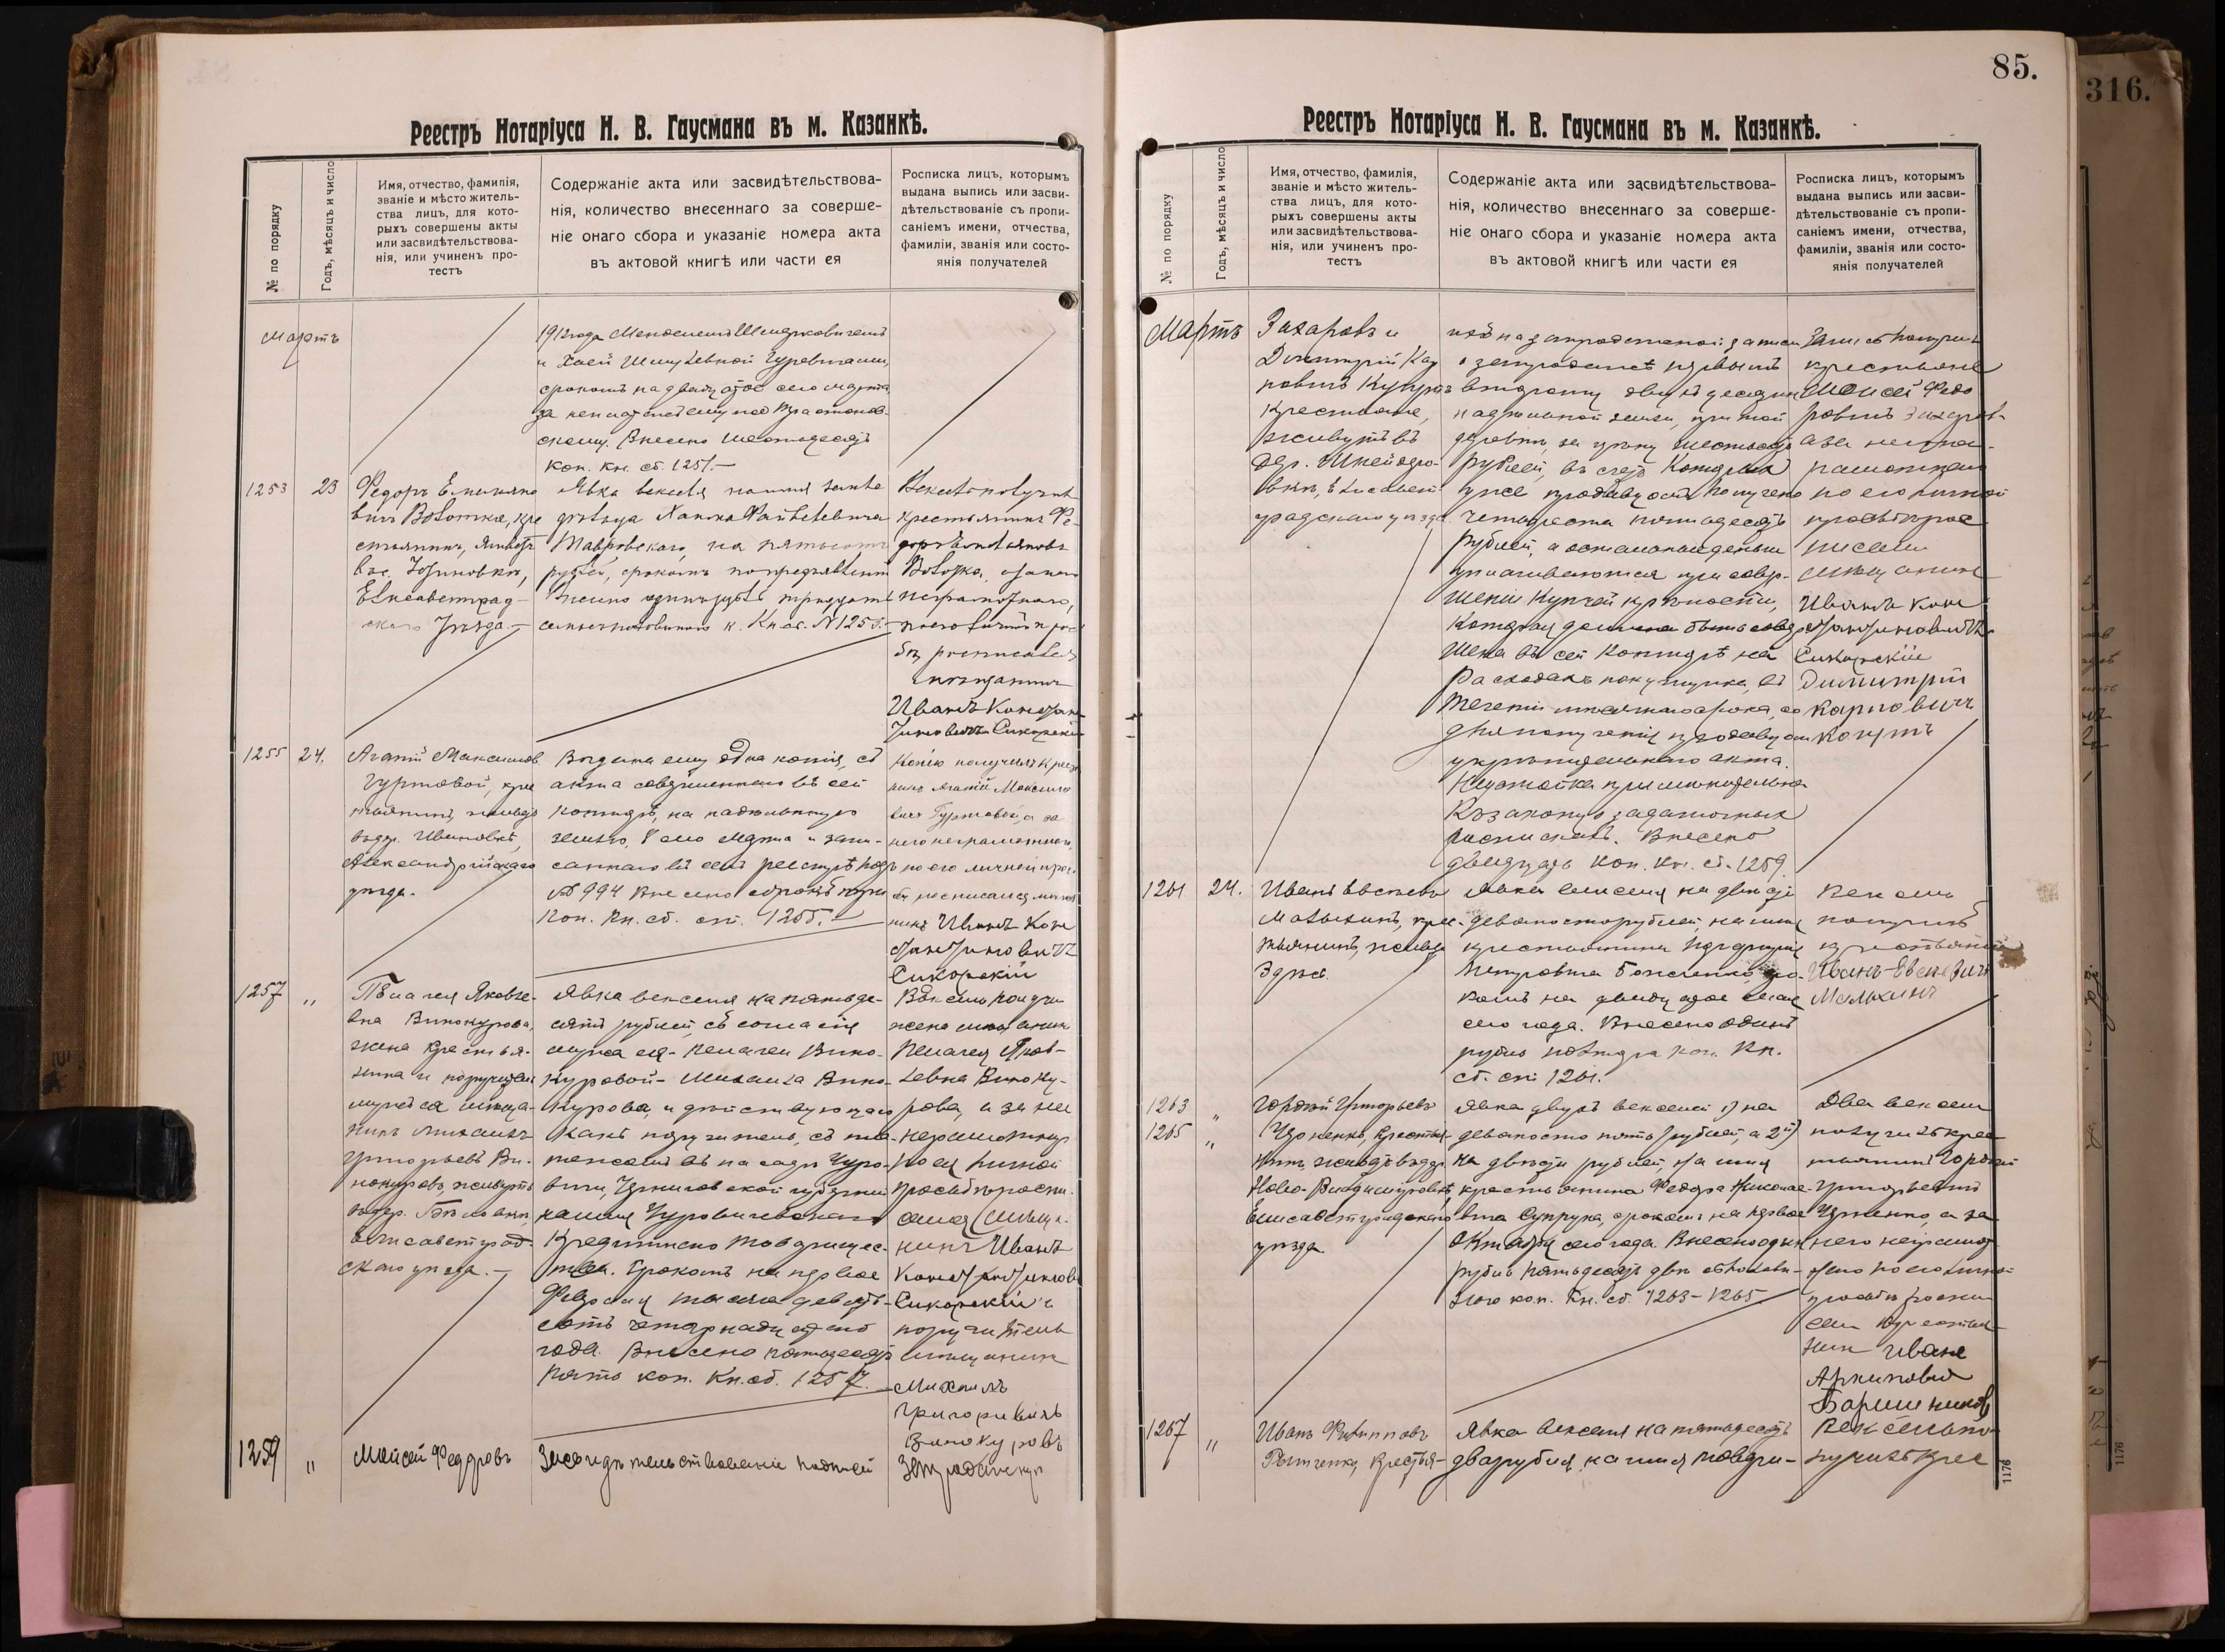 Реестръ Нотаріуса Н. В. Гаусмана въ м. Казанкѣ.
№ по порядку
Годъ, мѣсяцъ и число
Имя, отчество, фамилія,
званіе и мѣсто житель-
ства лицъ, для кото-
рыхъ совершены акты
или засвидѣтельствова-
нія, или учиненъ про-
тестъ
Содержаніе акта или засвидѣтельствова-
нія, количество внесеннаго за соверше-
ніе онаго сбора и указаніе номера акта
въ актовой книгѣ или части ея
Росписка лицъ, которымъ
выдана выпись или засви-
дѣтельствованіе съ пропи-
саніемъ имени, отчества,
фамиліи, званія или состо-
янія получателей
Мартъ
1912 года
и Хаей
срокомъ на
за
скому. Внесено шестьдесятъ
коп. кн. сб. 1251.—
1253
23
Федоръ Емельяно
вичъ Волошка, кре
стьянинъ, живетъ
въ с.
Елисаветград-
скаго уѣзда.—
Явка векселя на имя земле
Тавровскаго, на пятьсотъ
рублей, срокомъ по предъявленіи
Внесено одинъ рубль тридцать
семь съ половиною к. Кн. сб. № 1253.—
Вексель получилъ
крестьянинъ Фе-
доръ Емельяновъ
Волошка, а за него
неграмотнаго,
по его личной прось-
бѣ росписался
мѣщанинъ
Иванъ Констан-
тиновичъ Сикорскій
1255
24.
Агапій Максимов
Гуртовой, крес
тьянинъ, живетъ
въ дер. Ивановкѣ,
Александрійскаго
уѣзда.
Выдана ему одна копія, съ
акта совершеннаго въ сей
конторѣ, на надѣльную
землю, 8 сего марта и запи-
саннаго въ семъ реестрѣ подъ
№ 994 Внесено сорокъ пять
коп. Кн. сб. ст. 1255.—
Копію получилъ крест
нинъ Агапій Максимо
вичъ Гуртовой, а за
него неграмотнаго,
по его личной прось
бѣ росписался мѣща
нинъ Иванъ Кон
стантиновичъ
Сикорскій
1257
"
Пелагея Яковле-
вна Винокурова,
жена крестья-
нина и поручитель
мужъ ея мѣща-
нинъ Михаилъ
Григорьевъ Ви-
нокуровъ, живутъ
въ дер.
Елисаветград-
скаго уѣзда.—
Явка векселя на пятьде-
сятъ рублей, съ согласія
мужа ея- Пелагеи Вино-
куровой- Михаила Вино-
курова, и дѣйствующаго
какъ поручитель, съ
Черниговской губерніи
Кредитнаго Товарищес-
тва. Срокомъ на первое
Февраля тысяча девять-
сотъ четырнадцатаго
года. Внесено пятьдесятъ
пять коп. Кн. сб. 1257.—
Вексель получи
жена мѣщанина
Пелагея Яков-
левна Виноку-
рова, а за нее
неграмотную
по ея личной
просьбѣ роспи-
сался мѣща-
нинъ Иванъ
Константиновъ
Сикорскій и
поручитель
мѣщанинъ
Михаилъ
Григоревичъ
Винокуровъ
1259
"
Мойсей Федоровъ
Засвидѣтельствованіе подписей
Запродажную

85.
Реестръ Нотаріуса Н. В. Гаусмана въ м. Казанкѣ.
№ по порядку
Годъ, мѣсяцъ и число
Имя, отчество, фамилія,
званіе и мѣсто житель-
ства лицъ, для кото-
рыхъ совершены акты
или засвидѣтельствова-
нія, или учиненъ про-
тестъ
Содержаніе акта или засвидѣтельствова-
нія, количество внесеннаго за соверше-
ніе онаго сбора и указаніе номера акта
въ актовой книгѣ или части ея
Росписка лицъ, которымъ
выдана выпись или засви-
дѣтельствованіе съ пропи-
саніемъ имени, отчества,
фамиліи, званія или состо-
янія получателей
Мартъ
Захаровъ и
Димитрій Кар
повичъ
крестьяне,
живутъ въ
дер. Шнейдеро-
вкѣ, Елисавет
градскаго уѣзда.
ихъ на запродажной записи
о запродажѣ первымъ
второму двухъ десятинъ
надѣльной земли, при той
деревнѣ, за цѣну шестьсотъ
рублей, въ счетъ которыхъ
уже продавцомъ получено
четыреста пятьдесятъ
рублей, а остальныя деньги
уплачиваются при совер-
шеніи купчей крѣпости,
которая должна быть совер
шена въ сей конторѣ на
расходахъ покупщика, въ
теченіи мѣсячнаго срока, со
дня полученія продавцомъ
укрѣпительнаго акта.
Неустойка
Къ закону о задаточныхъ
роспискахъ. Внесено
двадцать коп. Кн. сб. 1259.
Запись получилъ
крестьяне
Мойсей Федо
ровичъ Захаров-
а за неграм-
по его личной
просьбѣ рос-
писался
мѣщанинъ
Иванъ Кон
стантиновичъ
Сикорскій
Димитрій
Карповичъ
1261
24.
Иванъ Евсѣевъ
Малыхинъ, крес-
тьянинъ, живетъ
здѣсь.
Явка векселя на двѣсти
девяносто рублей, на имя
крестьянина
Петровича Боженко, сро-
комъ на двадцатое
сего года. Внесено одинъ
рубль полтора коп. Кн.
сб. ст. 1261.
Вексель
получилъ
крестьянинъ
Иванъ Евсеевичъ
Малыхинъ
1263
"
1265
"
Гордей Григорьевъ
Черненко, крестья-
нинъ живетъ въ дер.
Ново-Владимировкѣ,
Елисаветградскаго
уѣзда.
Явка двухъ векселей 1) на
девяносто пять рублей, а 2й)
на двѣсти рублей, на имя
крестьянина Федора Николае-
вича Супруна, срокомъ на первое
Октября сего года. Внесено одинъ
рубль пятьдесятъ два съ полови-
ною коп. Кн. сб. 1263-1265
Два векселя
получилъ крес
тьянинъ Гордей
Григорьевичъ
Черненко, а за
него неграмот
наго по его лично
просьбѣ росписа
лся крестья-
нин Иване
Архиповичъ
Баришников
1267
"
Иванъ Филипповъ
Романченко, крестья-
Явка векселя на пятьдесятъ
два рубля, на имя Товари-
Вексель по-
лучилъ крес
1176
316.
1176